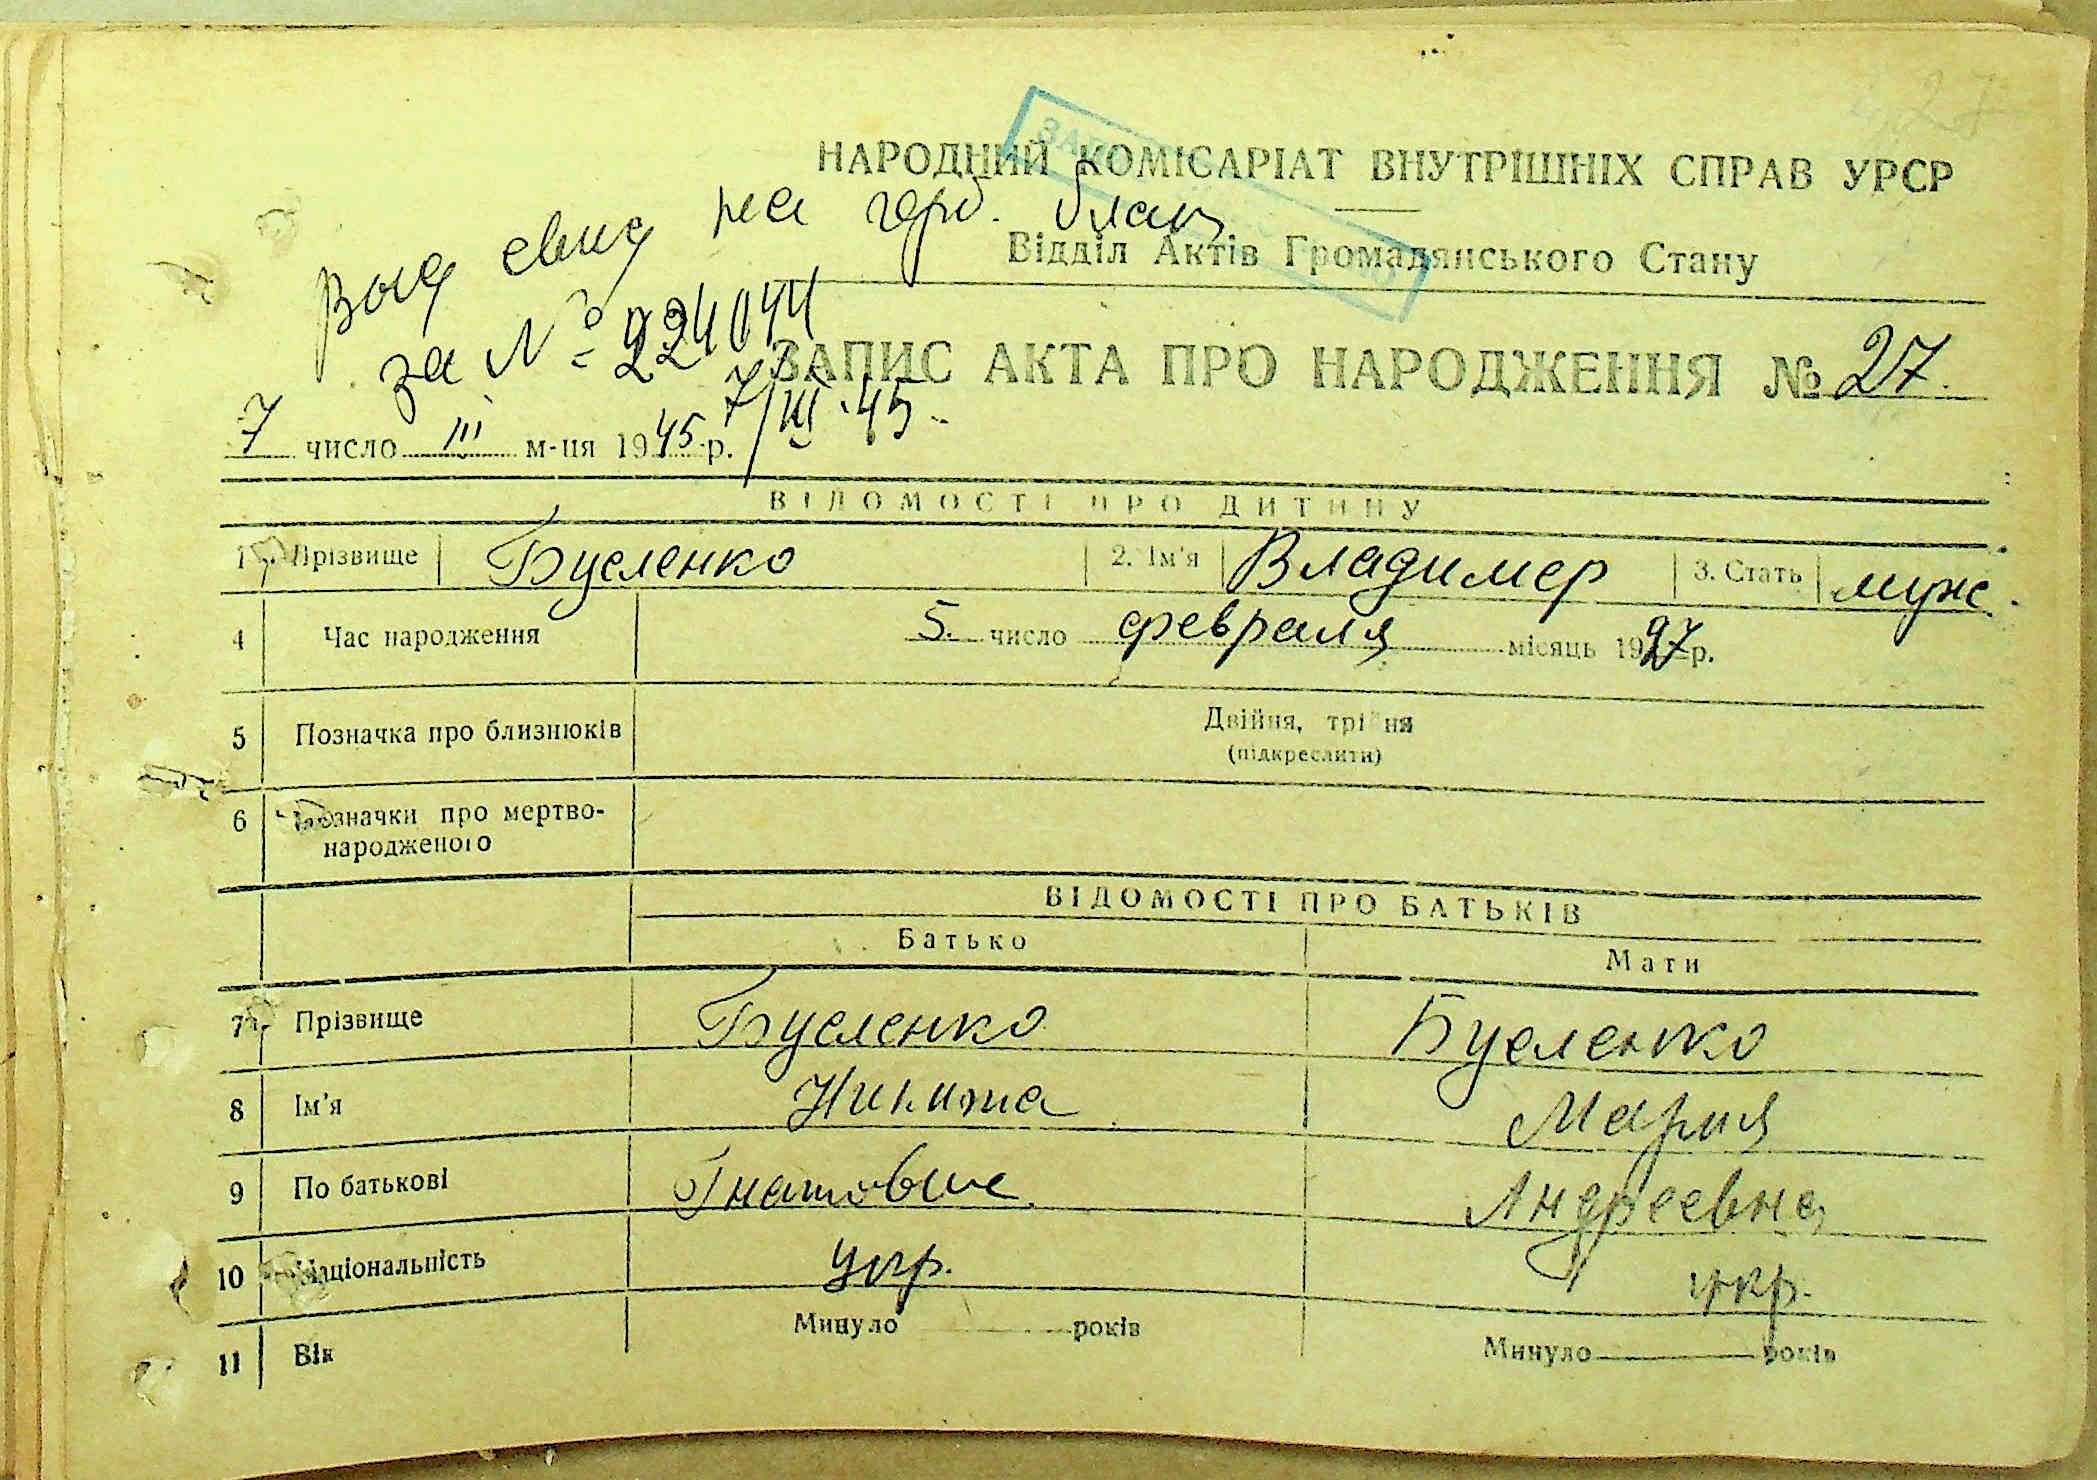 НАРОДНИЙ КОМІСАРІАТ ВНУТРІШНІХ СПРАВ УРСР
Выд свид на герб. бланк
Відділ Актів Громадянського Стану
за № 224044
ЗАПИС АКТА ПРО НАРОДЖЕННЯ № 27.
7/III-45.
7 число III м-ця 1945 р.
ВІДОМОСТІ ПРО ДИТИНУ
1 Прізвище Бусленко 2. Ім'я Владимер 3. Стать муж.
4 Час народження 5. число февраля місяць 1927 р.
5 Позначка про близнюків Двійня, трійня
(підкреслити)
6 Позначки про мертво-
народженого
ВІДОМОСТІ ПРО БАТЬКІВ
Батько Мати
7 Прізвище Бусленко Бусленко
8 Ім'я Никита Мария
9 По батькові Гнатович Андреевна
10 Національність укр. укр.
11 Вік Минуло років Минуло років